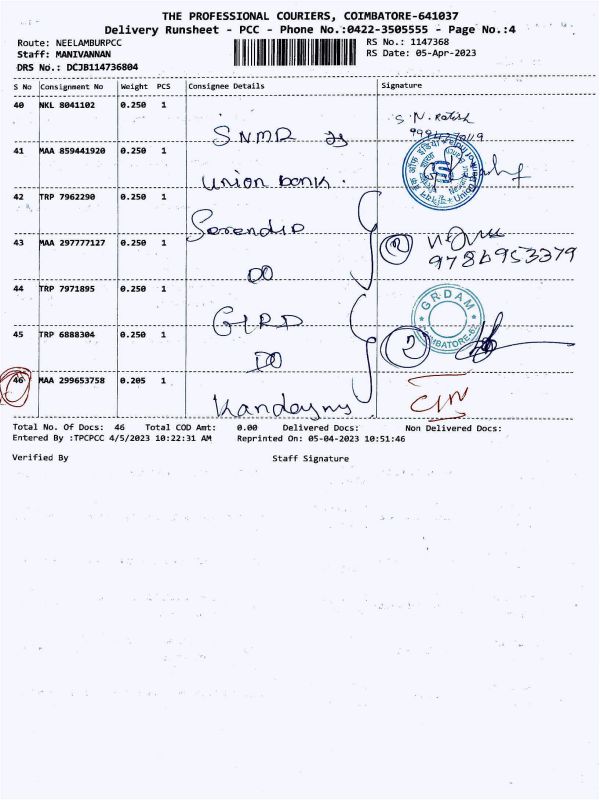 THE PROFESSIONAL COURIERS, COIMBATORE-641037
Delivery Runsheet - PCC - Phone No.:0422-3505555 - Page No.:4
Route: NEELAMBURPCC
RS No.: 1147368
Staff: MANIVANNAN
RS Date: 05-Apr-2023
DRS No.: DCJB114736804
S No Consignment No Weight PCS Consignee Details Signature
40 NKL 8041102 0.250 1 S.N.M.R
41 MAA 859441920 0.250 1 Union bank.
42 TRP 7962290 0.250 1
43 MAA 297777127 0.250 1 DO 2
9786953379
44 TRP 7971895 0.250 1 GRDAM
45 TRP 6888304 0.250 1 DO 2
46 MAA 299653758 0.205 1
Total No. Of Docs: 46 Total COD Amt: 0.00 Delivered Docs: Non Delivered Docs:
Entered By :TPCPCC 4/5/2023 10:22:31 AM Reprinted On: 05-04-2023 10:51:46
Verified By Staff Signature